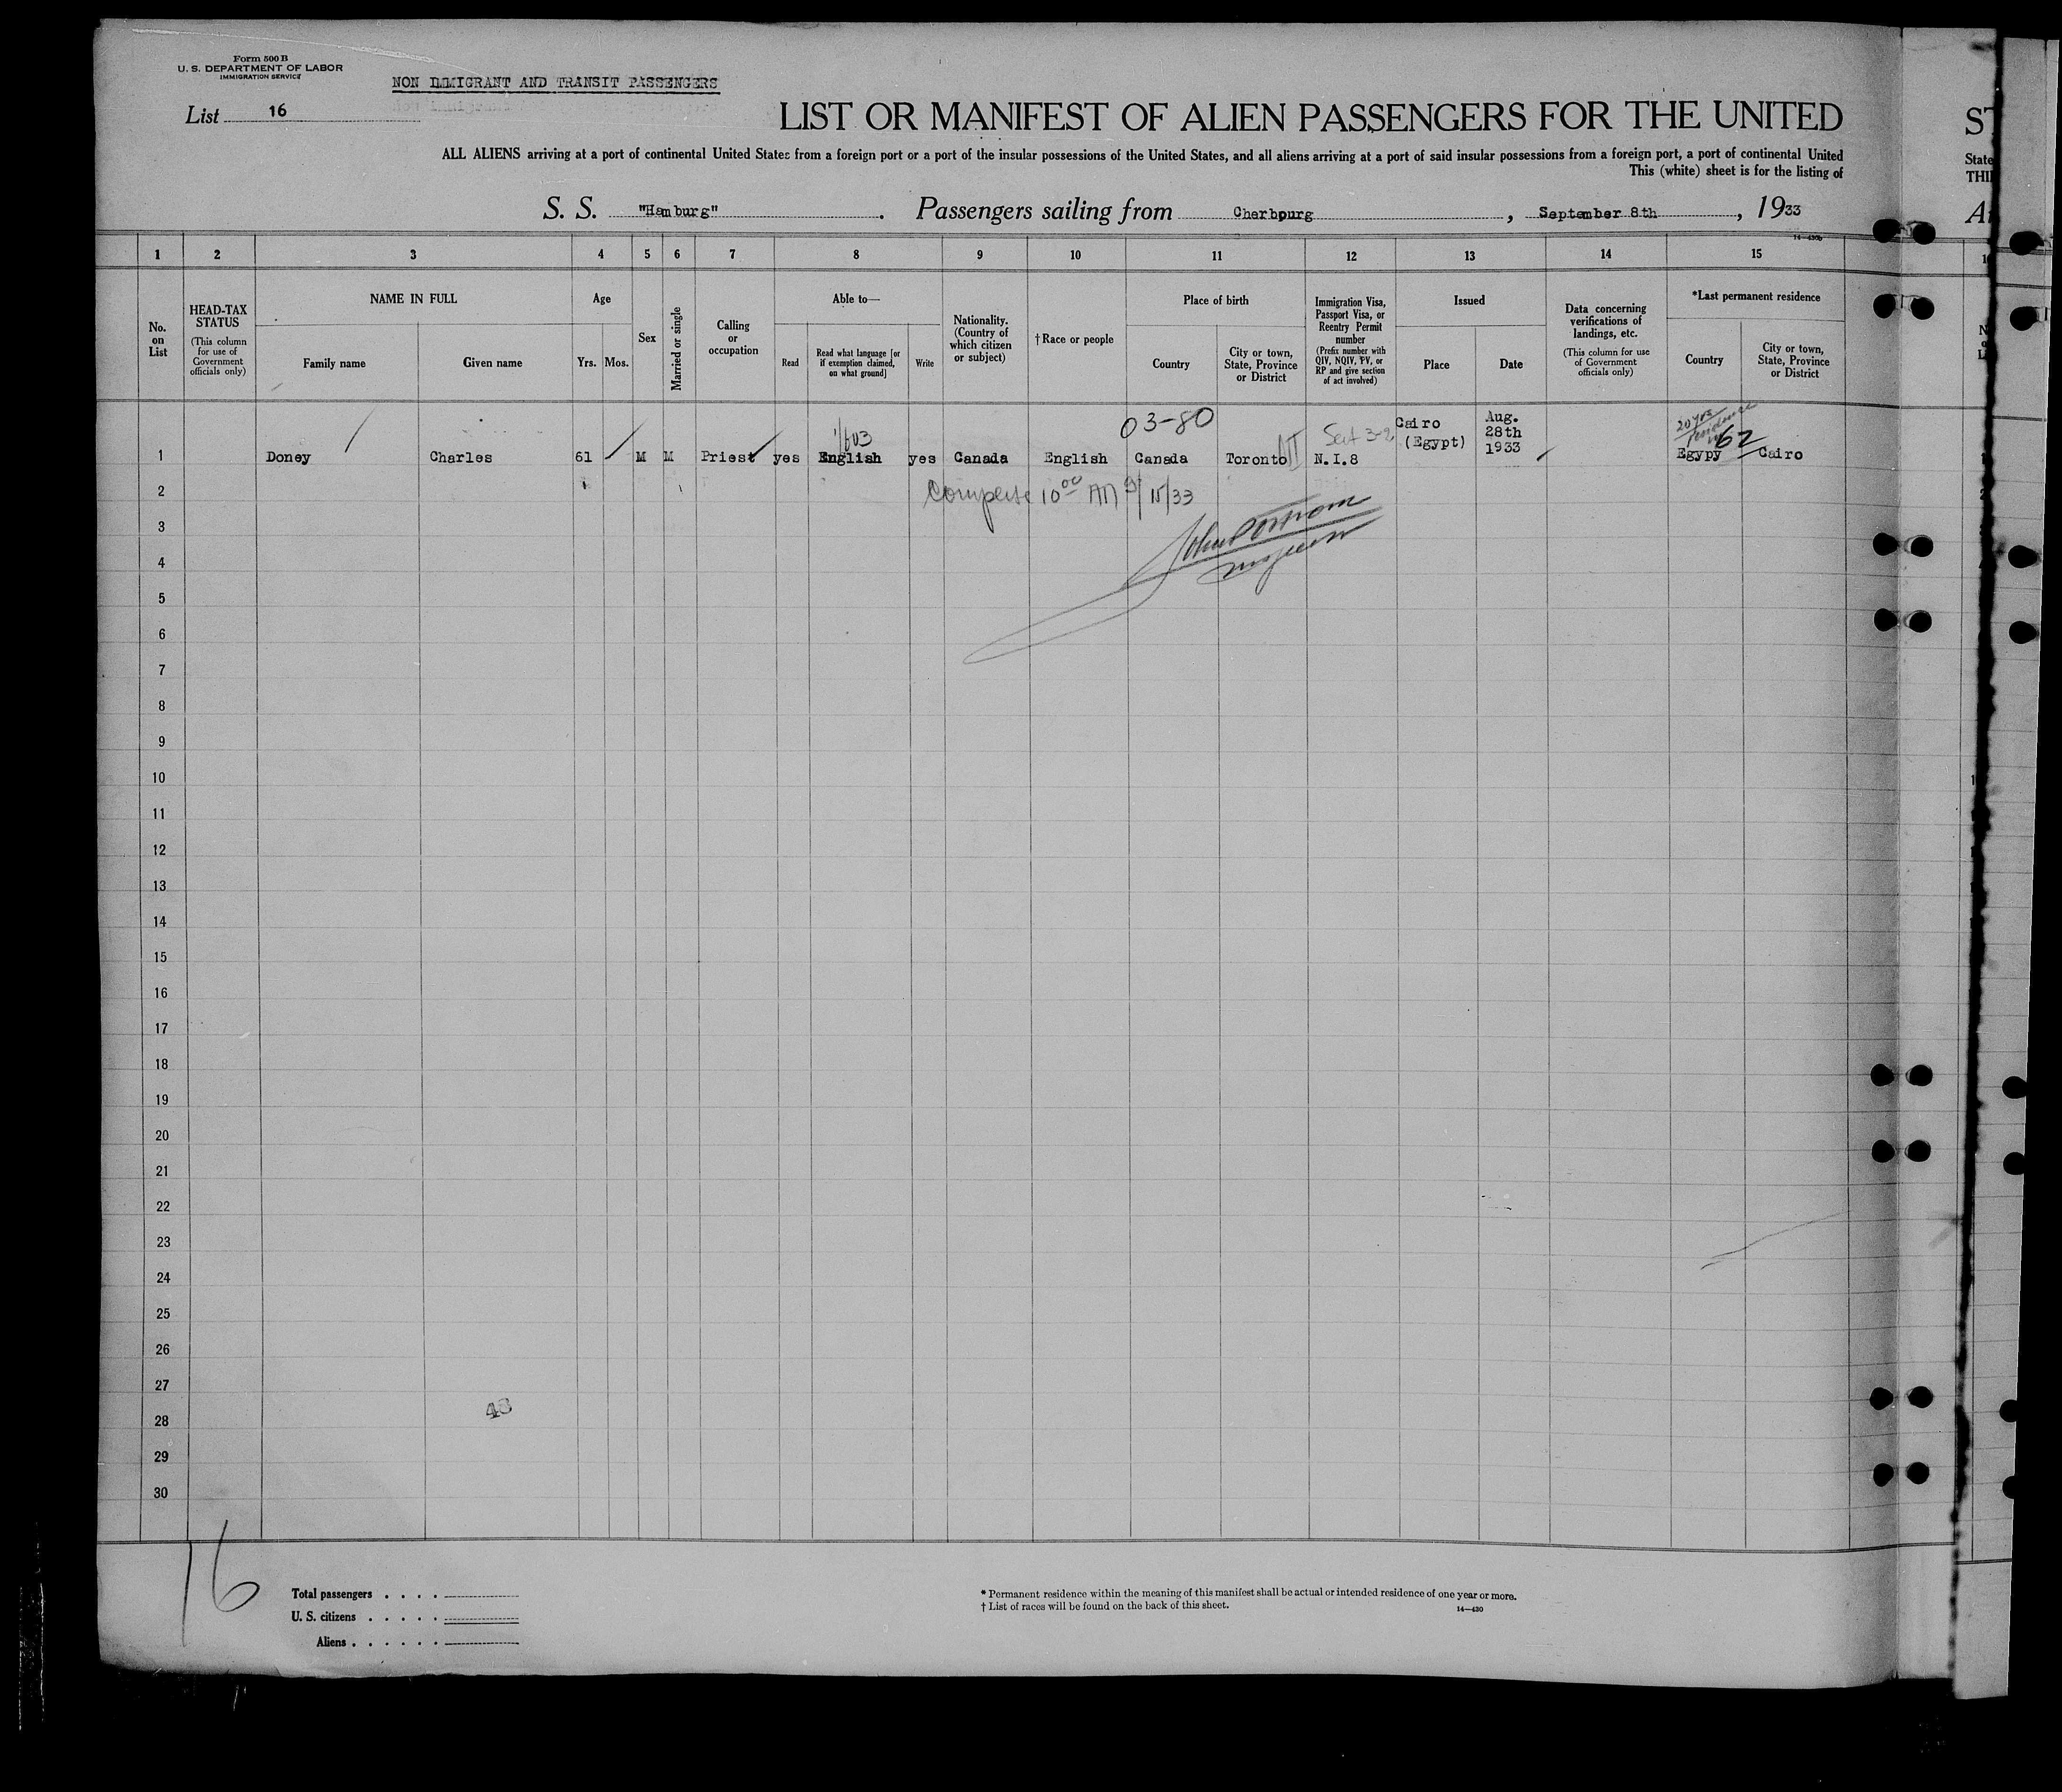 Form 500 B
U. S. DEPARTMENT OF LABOR
IMMIGRATION SERVICE
NON IMMIGRANT AND TRANSIT PASSENGERS
List 16
LIST OR MANIFEST OF ALIEN PASSENGERS FOR THE UNITED
ST
ALL ALIENS arriving at a port of continental United States from a foreign port or a port of the insular possessions of the United States, and all aliens arriving at a port of said insular possessions from a foreign port, a port of continental United
State
This (white) sheet is for the listing of
THI
S. S. "Hamburg". Passengers sailing from Cherbourg, September 8th, 1933
1 2 3 4 5 6 7 8 9 10 11 12 13 14 15
No. on List
HEAD-TAX STATUS
(This column for use of Government officials only)
NAME IN FULL
Family name
Given name
Age
Yrs. Mos.
Sex
Married or single
Calling or occupation
Able to—
Read
Read what language [or if exemption claimed, on what ground]
Write
Nationality. (Country of which citizen or subject)
† Race or people
Place of birth
Country
City or town, State, Province or District
Immigration Visa, Passport Visa, or Reentry Permit number
(Prefix number with QIV, NQIV, PV, or RP and give section of act involved)
Issued
Place
Date
Data concerning verifications of landings, etc.
(This column for use of Government officials only)
*Last permanent residence
Country
City or town, State, Province or District
03-80
Cairo (Egypt)
Aug. 28th 1933
20 yrs
62
1 Doney Charles 61 M M Priest yes English yes Canada English Canada Toronto N.I.8 Egypy Cairo
2
10 00 AM 9/15/33
3
4
5
6
7
8
9
10
11
12
13
14
15
16
17
18
19
20
21
22
23
24
25
26
27
28
29
30
16
Total passengers . . . .
U. S. citizens . . . . .
Aliens . . . . . .
* Permanent residence within the meaning of this manifest shall be actual or intended residence of one year or more.
† List of races will be found on the back of this sheet.
14—430